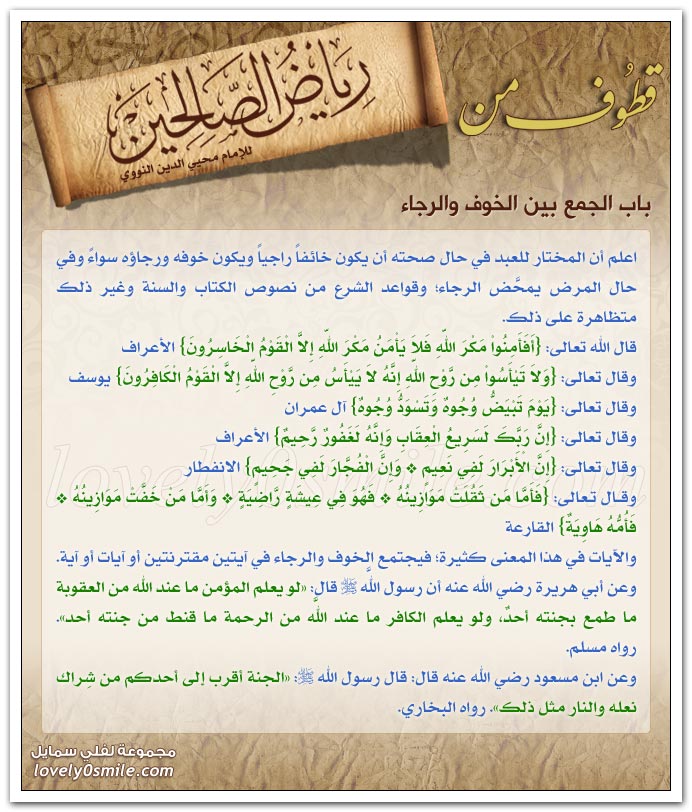 قطوف من
رياض الصالحين
للإمام محيي الدين النووي
باب الجمع بين الخوف والرجاء
اعلم أن المختار للعبد في حال صحته أن يكون خائفاً راجياً ويكون خوفه ورجاؤه سواءً وفي
حال المرض يمحَّض الرجاء؛ وقواعد الشرع من نصوص الكتاب والسنة وغير ذلك
متظاهرة على ذلك.
قال الله تعالى: {أَفَأَمِنُواْ مَكْرَ اللّهِ فَلاَ يَأْمَنُ مَكْرَ اللّهِ إِلاَّ الْقَوْمُ الْخَاسِرُونَ} الأعراف
وقال تعالى: {وَلاَ تَيْأَسُواْ مِن رَّوْحِ اللّهِ إِنَّهُ لاَ يَيْأَسُ مِن رَّوْحِ اللّهِ إِلاَّ الْقَوْمُ الْكَافِرُونَ} يوسف
وقال تعالى: {يَوْمَ تَبْيَضُّ وُجُوهٌ وَتَسْوَدُّ وُجُوهٌ} آل عمران
وقال تعالى: {إِنَّ رَبَّكَ لَسَرِيعُ الْعِقَابِ وَإِنَّهُ لَغَفُورٌ رَّحِيمٌ} الأعراف
وقال تعالى: {إِنَّ الْأَبْرَارَ لَفِي نَعِيمٍ ❖ وَإِنَّ الْفُجَّارَ لَفِي جَحِيمٍ} الانفطار
وقال تعالى: {فَأَمَّا مَن ثَقُلَتْ مَوَازِينُهُ ❖ فَهُوَ فِي عِيشَةٍ رَّاضِيَةٍ ❖ وَأَمَّا مَنْ خَفَّتْ مَوَازِينُهُ ❖
فَأُمُّهُ هَاوِيَةٌ} القارعة
والآيات في هذا المعنى كثيرة؛ فيجتمع الخوف والرجاء في آيتين مقترنتين أو آيات أو آية.
وعن أبي هريرة رضي الله عنه أن رسول الله ﷺ قال: «لو يعلم المؤمن ما عند الله من العقوبة
ما طمع بجنته أحدٌ، ولو يعلم الكافر ما عند الله من الرحمة ما قنط من جنته أحد».
رواه مسلم.
وعن ابن مسعود رضي الله عنه قال: قال رسول الله ﷺ: «الجنة أقرب إلى أحدكم من شِراك
نعله والنار مثل ذلك». رواه البخاري.
lovely0smile.com
مجموعة لفلي سمايل
lovely0smile.com